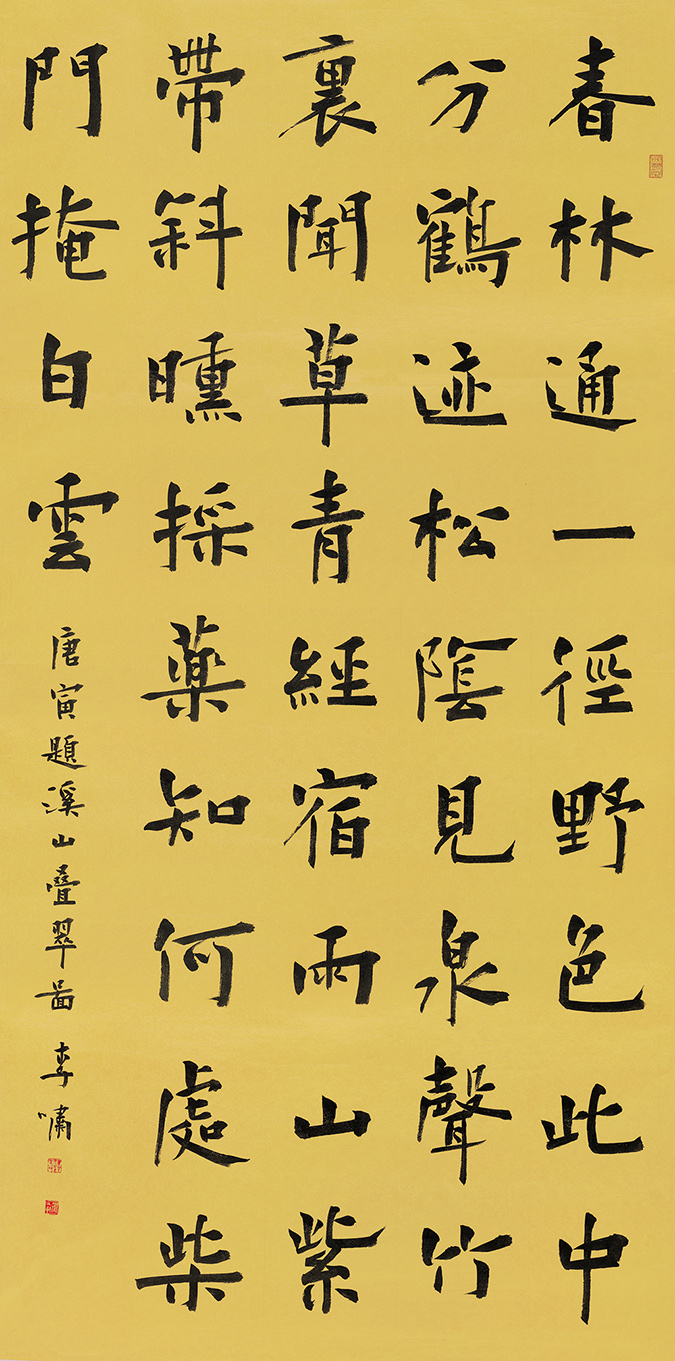 春林通一徑野色此中
分鶴迹松陰見泉聲竹
裏聞草青經宿雨山紫
帶斜曛採藥知何處柴
門掩白雲
唐寅題溪山疊翠啚 李嘯